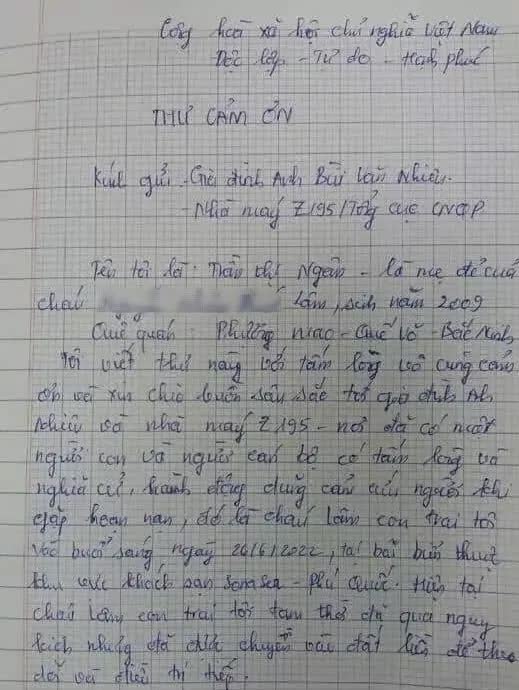 Cộng hoà xã hội chủ nghĩa Việt Nam
Độc lập - Tự do - Hạnh phúc
THƯ CẢM ƠN
Kính gửi - Gia đình Anh Bùi Văn Nhiên.
- Nhà máy Z195/Tổng cục CNQP
Tên tôi là: Trần thị Ngân - là mẹ đẻ của
cháu Lâm, sinh năm 2009
Quê quán: Phương mao - Quế Võ - Bắc Ninh
Tôi viết thư này với tấm lòng vô cùng cảm
ơn và xin chia buồn sâu sắc tới gia đình Anh
Nhiên và nhà máy Z195 - nơi đã có một
người con và người cán bộ có tấm lòng và
nghĩa cử, hành động dũng cảm cứu người khi
gặp hoạn nạn, đó là cháu Lâm con trai tôi
vào buổi sáng ngày 26/6/2022, tại bãi biển thuộc
khu vực khách sạn Sonasea - Phú Quốc. Hiện tại
cháu Lâm con trai tôi tạm thời đã qua nguy
kịch nhưng đã được chuyển vào đất liền để theo
dõi và điều trị tiếp.